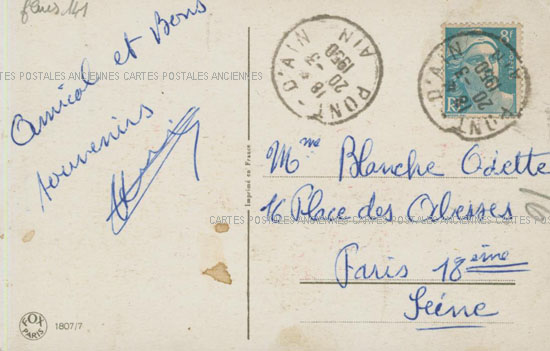 fleurs 141
Amical et Bons
souvenirs
PONT-D'AIN
AIN
18 H
20 - 3
1950
8F
RF
PONT-D'AIN
AIN
20 - 3
1950
CARTES POSTALES ANCIENNES CARTES POSTALES ANCIENNES
Imprimé en France
Mme Blanche Odette
16 Place des Abesses
CARTES POSTALES ANCIENNES CARTES POSTALES ANCIENNES
Paris 18ème
Seine
FOX
PARIS
1807/7